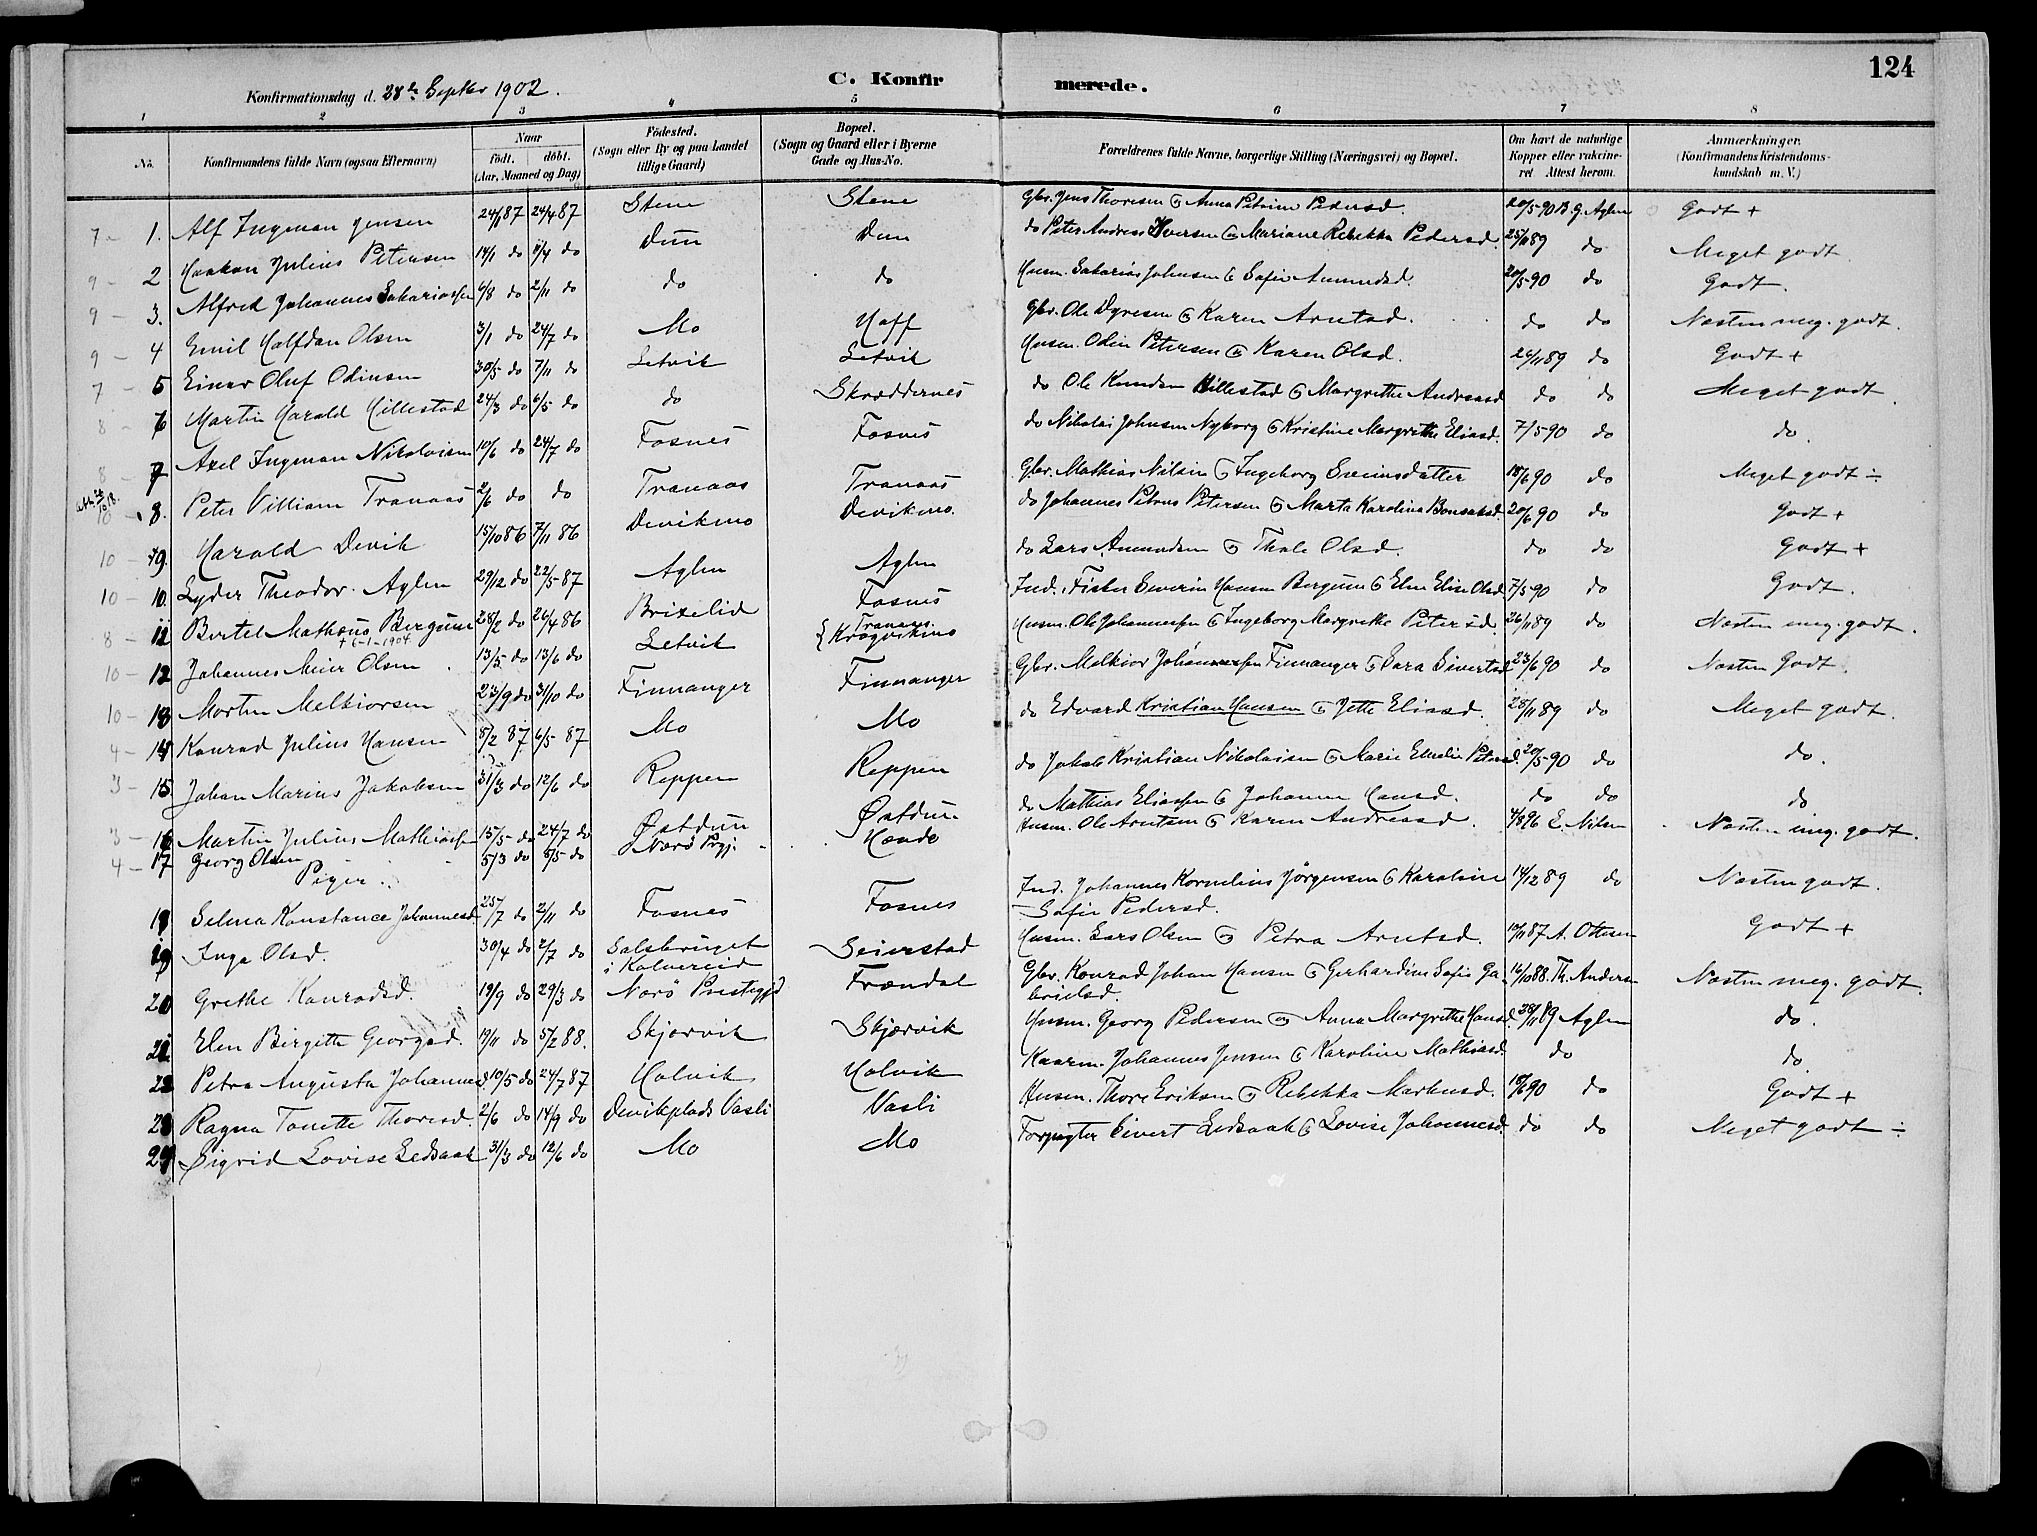 124
C. Konfirmerede.
Konfirmationsdag d. 28de Septbr 1902.
1 2 3 4 5 6 7 8
No. Konfirmandens fulde Navn (ogsaa Efternavn) Naar født. døbt. (Aar, Maaned og Dag) Fødested. (Sogn eller By og paa Landet tillige Gaard) Bopæl. (Sogn og Gaard eller i Byerne Gade og Hus-No. Forældrenes fulde Navne, borgerlige Stilling (Næringsvei) og Bopæl. Om havt de naturlige Kopper eller vakcineret Attest herom. Anmærkninger. (Konfirmandens Kristendomskundskab m. V.)
7 - 1. Alf Ingeman Jensen 87 24/4 87 Stene Stene Gbr. Jens Thoresen & Anna Petrine Pedersd. 20/5-90 B. G. Aglen Godt +
9 - 2 Haakon Julius Petersen 14/1 do /4 do Dun Dun do Peter Andreas Iversen & Mariane Rebekka Pedersd. 25/11 89 do Meget godt.
9 - 3. Alfred Johannes Sakariassen 6/8 do 2/11 do do do Husm. Sakarias Johnsen & Sofie Amundsd. 20/5-90 do Godt.
9 - 4 Emil Halfdan Olsen 3/1 do 24/7 do Mo Hoff Gbr. Ole Dyresen & Karen Arntsd. do do Næsten meg. godt.
7 - 5 Einar Oluf Odinsen 30/5 do 7/11 do Setvik Setvik Husm. Odin Petersen & Karen Olsd. 26/11 89 do Godt +
8 - 6 Martin Harald Hillestad 24/3 do 6/5 do do Skræddernes do Ole Knudsen Hillestad & Margrethe Andreasd do do Meget godt.
8 - 7 Axel Ingeman Nikolaisen 10/6 do 24/7 do Fosnes Fosnes do Nikolai Johnsen Nyborg & Kristine Margrethe Eliasd. 7/5 90 do do.
10 - 8. Peter Villiam Tranaas 2/6 do do Tranaas Tranaas Gbr. Mathias Nilsen & Ingeborg Sveinsdatter 18/6 90 do Meget godt ÷
10 - 9. Harald Devik 15/10 86 7/11 86 Devikmo Devikmo. do Johannes Petrus Petersen & Marta Karolina Bonsaksd. 20/6 90 do Godt +
10 - 10. Lyder Theodor Aglen 29/12 do 22/5-87 Aglen Aglen do Lars Amundsen & Thale Olsd. do do Godt +
8 - 11 Bertel Mathæus Bergum 28/2 do 26/4 86 Brixelid Fosnes Ind. Fisker Severin Hansen Bergum & Elen Elise Olsd 7/5-90 do Godt.
† 6-1-1904
10 - 12 Johannes Meier Olsen 13/5 do 13/6 do Setvik { Tranaas. Krogvikmo Husm. Ole Johannessen & Ingeborg Margrethe Petersd. 26/11 89 do Næsten meg. godt.
10 - 13 Morten Melkiorsen 23/9 do 31/10 do Finnanger Finnanger Gbr. Melkior Johannessen Finnanger & Sara Sivertsd 23/6 90 do Næsten Godt.
4 - 14 Konrad Julius Hansen 5/2 87 6/5 87 Mo Mo do Edvard Kristian Hansen & Jette Eliasd. 28/11 89 do Meget godt.
3 - 15 Johan Marius Jakobsen 31/3 do 12/6 do Reppen Reppen do Jakob Kristian Nikolaisen & Marie Emelie Petersd. 20/5-90 do do.
3 - 16 Martin Julius Mathiassen 15/5 do 24/7 do Østdun Østdun. do Mathias Eliassen & Johanna Hansd. do do do
4 - 17 Georg Olsen 5/3 do 5/5 do Nærø Prgj. Hendø Husm. Ole Arntsen & Karen Andreasd. 4/8 96 E. Nilsen Næsten meg. godt.
Piger.
18 Selma Konstance Johannesd 25/7 do 2/11 do Fosnes Fosnes Ind. Johannes Kornelius Jörgensen & Karoline Sofie Pedersd. 14/12 89 do Næsten godt.
19 Inga Olsd. 30/4 do 2/7 do Salsbruget i Kolvereid Seierstad Husm. Lars Olsen & Petra Arntsd. 87 A. Ottesen Godt +
20 Grethe Konradsd. 19/9 do 29/3 do Nærø Prestegjd Frændal Gbr. Konrad Johan Hansen & Gerhardine Sofie Gabrielsd. 16/10 88. Th. Andersen Næsten meg. godt.
21 Elen Birgitte Georgsd. 19/11 do 5/2 88. Skjærvik Skjærvik Husm. Georg Pedersen & Anna Margrethe Hansd. 28/11 89 Aglen do.
22 Petra Augusta Johannesd. 10/5 do 24/7 87 Holvik Holvik Kaarm. Johannes Jensen & Karoline Mathiasd. do do
23 Ragna Tonette Thoresd. 2/6 do 14/9 do Devikplads Vasli Vasli Husm. Thore Eriksen & Rebekka Markusd. 18/6 90 do Godt +
24 Sigrid Lovise Ledsaak 31/3 do 12/6 do Mo Mo Forpagter Sivert Ledsaak & Lovise Johannesd. do do Meget godt ÷